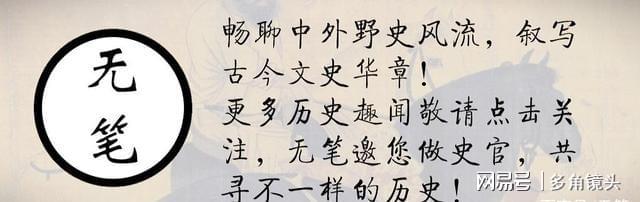 无
笔
畅聊中外野史风流，叙写
古今文史华章！
更多历史趣闻敬请点击关
注，无笔邀您做史官，共
寻不一样的历史！
网易号 | 多角镜头